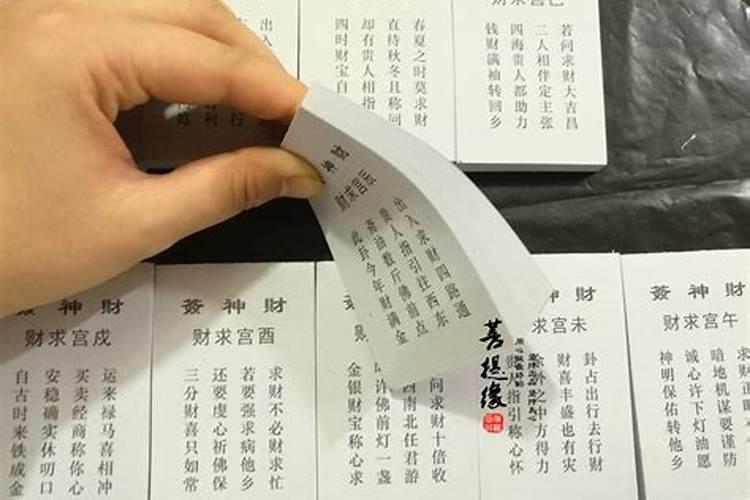 巳宫求财
若问求财大吉昌
二人相伴定主张
四海贵人都助力
钱财满袖转回乡
春夏之时莫求财
直待秋冬且称回
却有贵人相指
四时财宝自
出入
行
利
财神
宫求财
出入求财四路通
贵人指引往西东
斋油数斤佛前点
此卦今年财满金
財神簽
午宫求财
暗地机谋要谨防
诚心许下灯油愿
神明保佑转他乡
財
未宫求
卦占出行去行财
财喜丰盛也有灾
外之中方得力
指引称心怀
问求财十倍收
西南北任君游
许佛前灯一盏
金银财宝称心求
財神簽
酉宫求财
求财不必财求忙
若要强求病他乡
还要虔心祈佛保
三分财喜只如常
財神簽
戌宫求财
运来禄马喜相冲
买卖经商称你心
安稳确实休叨口
自古时来铁成金
菩提缘